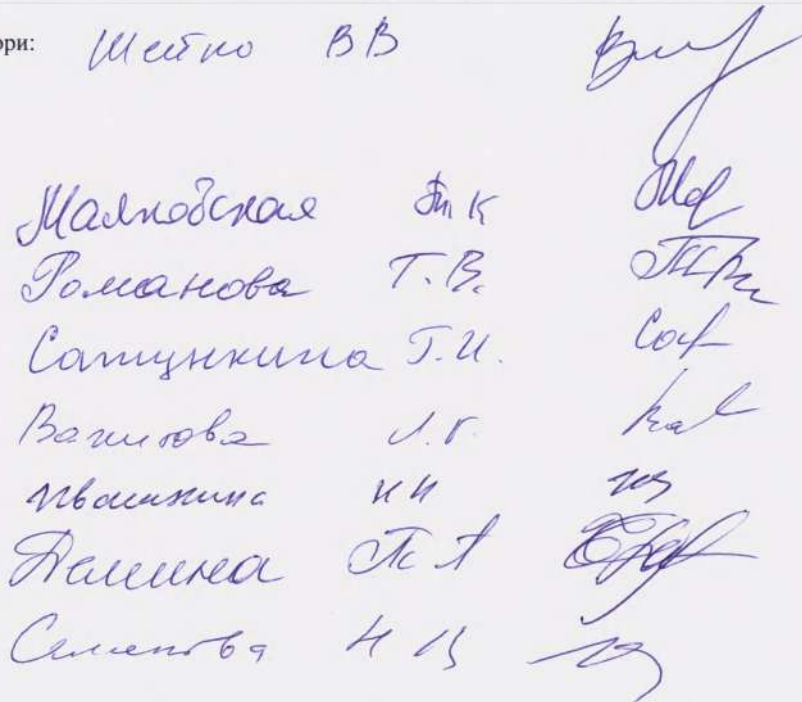 ори: Шейко В В
Маяковская Т К
Романова Т. В.
Сатункина Т. И.
Вагизова Л. Г.
Ивашкина Н Н
Демина Т А
Семенова Н В